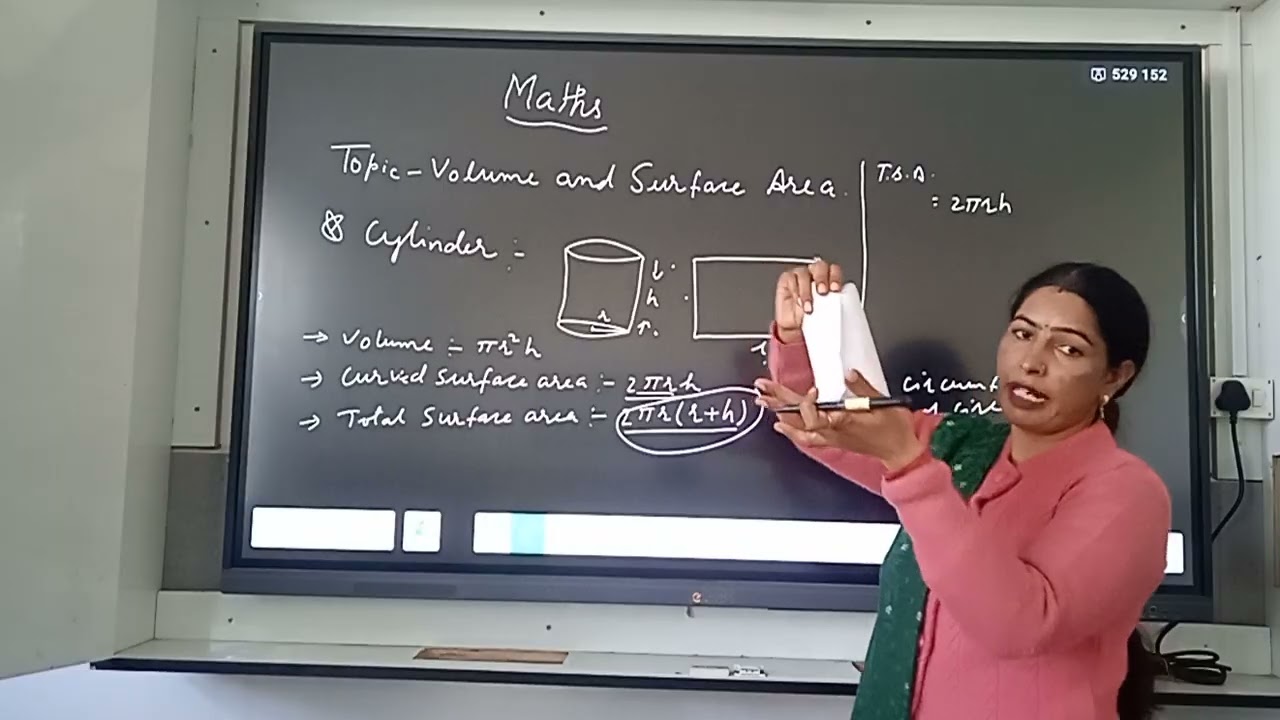 529 152
Maths
Topic - Volume and Surface Area.
Cylinder :-
h
r
r
→ Volume :- πr²h
→ Curved Surface area :- 2πrh
→ Total Surface area :- 2πr(r+h)
T.S.A.
= 2πrh